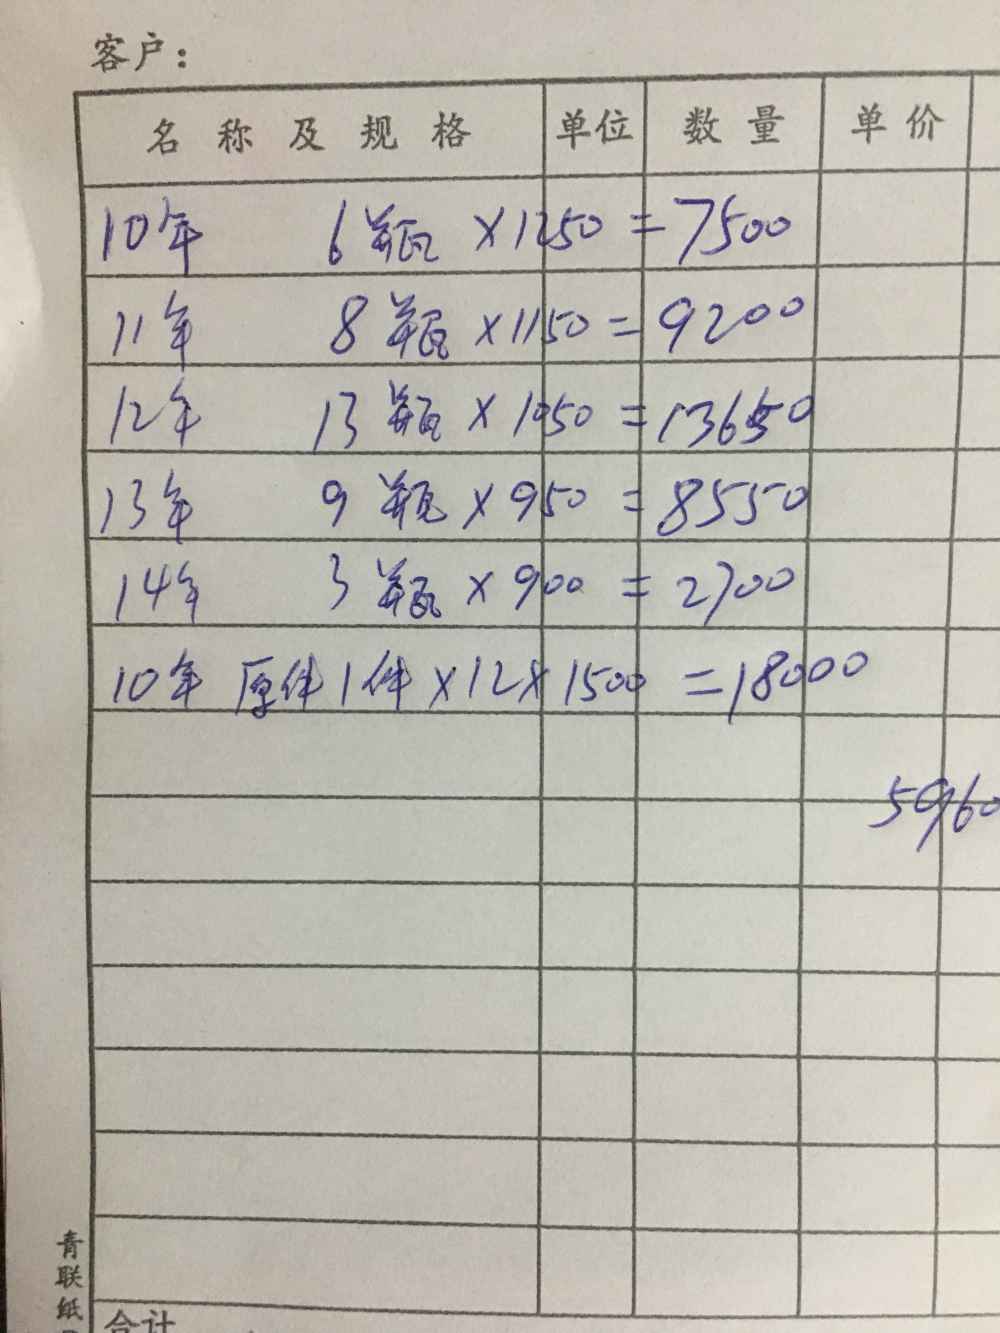 客户：
名称及规格 单位 数量 单价
10年 6瓶 ×1250 =7500
11年 8瓶 ×1150 =9200
12年 13瓶 ×1050 =13650
13年 9瓶 ×950 =8550
14年 3瓶 ×900 =2700
10年 原件1件×12×1500 =18000
5960
青联纸
合计